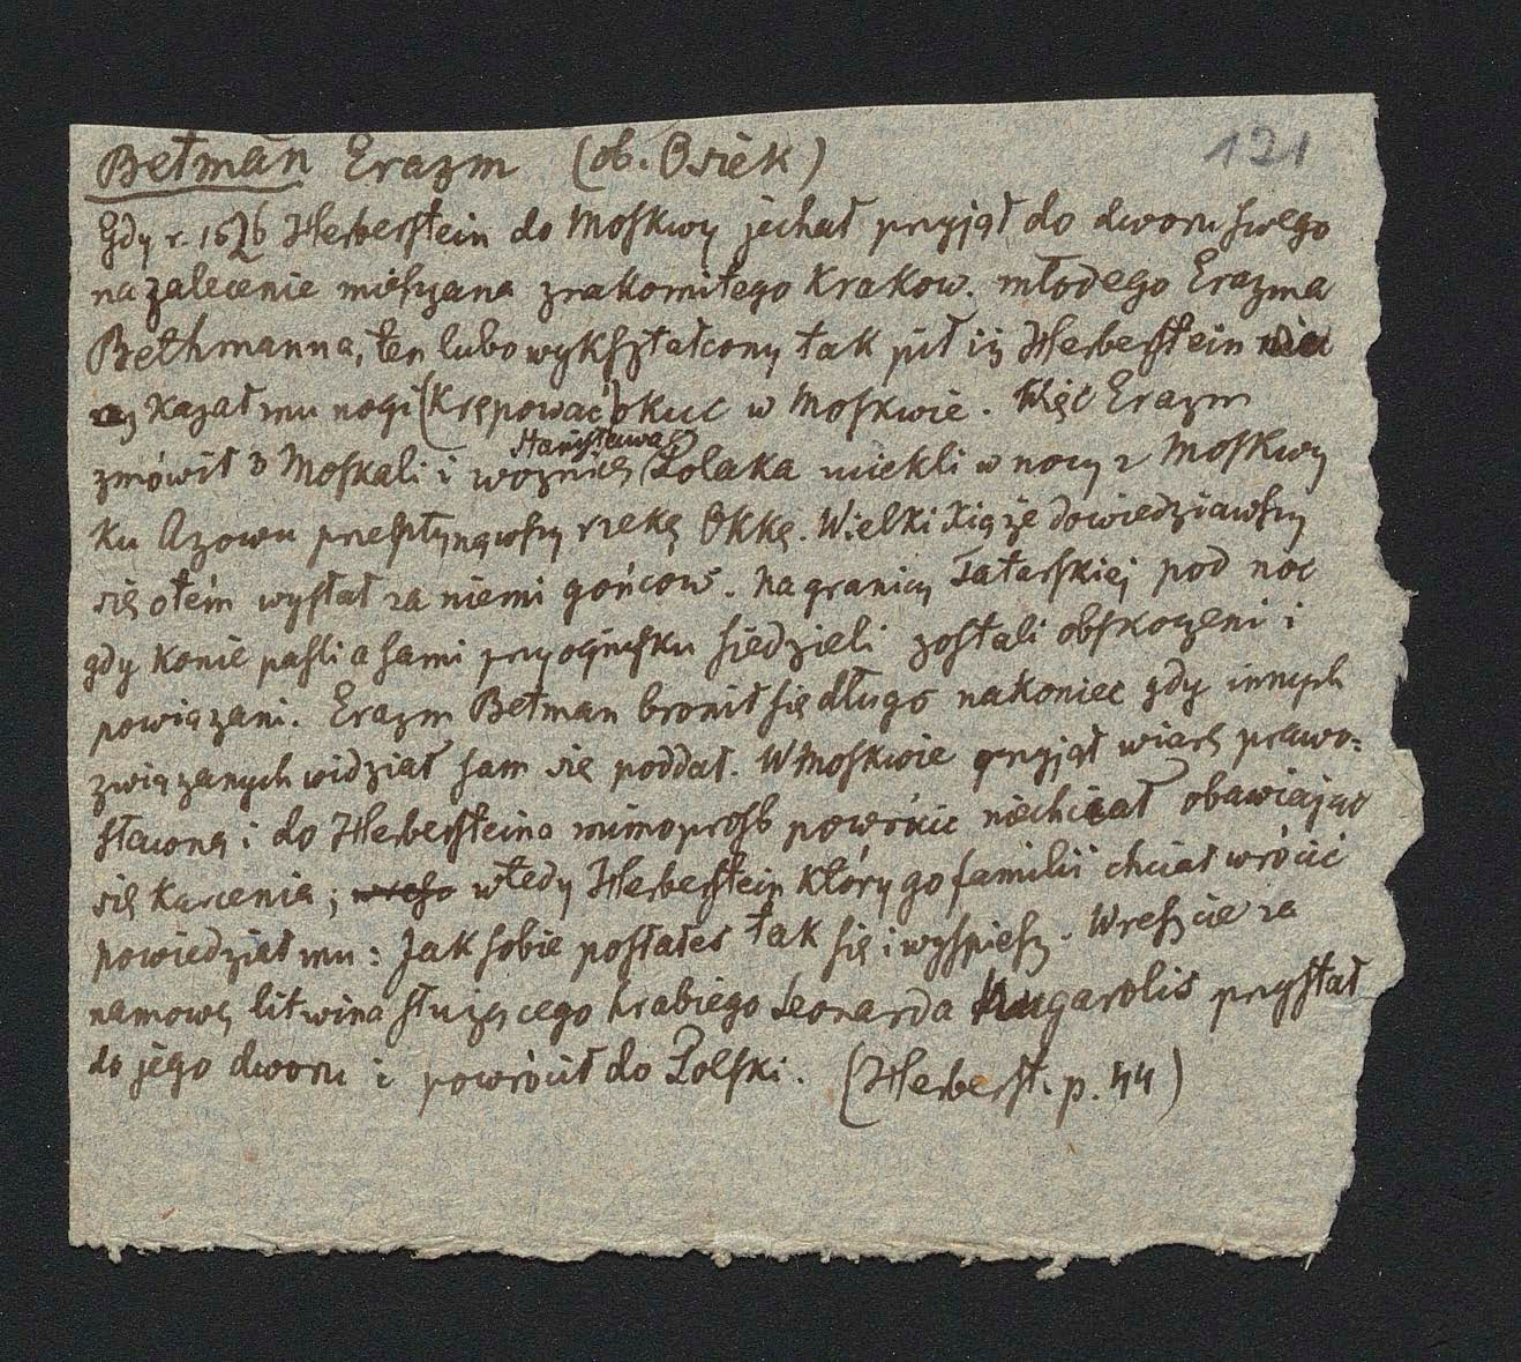 Betman Erazm (ob. Osiek) 121
Gdy r. 1526 Herberstein do Moskwy jechał przyjął do dworu swego
na zalecenie mieszczana znakomitego Krakow. młodego Erazma
Bethmanna, ten lubo wykształcony tak pił iż Herberstein nie
raz kazał mu nogi (krępować) okuć w Moskwie. Więc Erazm
zmówił 3 Moskali i woźnicę Stanisława Polaka uciekli w nocy z Moskwy
ku Azowu przepłynąwszy rzekę Okkę. Wielki Xiąże dowiedziawszy
się otém wysłał za niemi gońcow. Na granicy Tatarskiej pod noc
gdy konie paśli a sami przy ognisku siedzieli zostali obskoczeni i
powiązani. Erazm Betman bronił się długo nakoniec gdy innych
związanych widział sam się poddał. W Moskwie przyjął wiarę prawo=
sławną i do Herbersteina mimo prosb powrócić niechciał obawiając
się karcenia; wtedy Herberstein który go familii chciał wrócić
powiedział mu: Jak sobie posłałeś tak się i wyspiesz. Wreszcie za
namową litwina służącego hrabiego Leonarda Nugarolis przystał
do jego dworu i powrócił do Polski. (Herberst. p. 44)